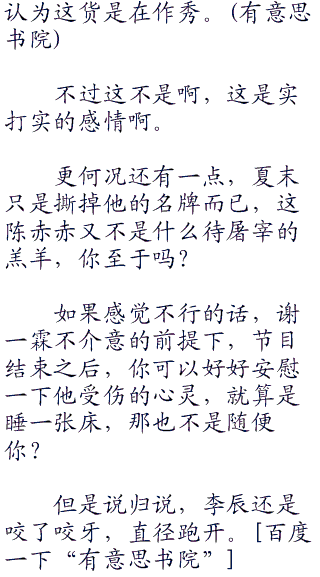 认为这货是在作秀。(有意思
书院)
不过这不是啊，这是实
打实的感情啊。
更何况还有一点，夏末
只是撕掉他的名牌而已，这
陈赤赤又不是什么待屠宰的
羔羊，你至于吗？
如果感觉不行的话，谢
一霖不介意的前提下，节目
结束之后，你可以好好安慰
一下他受伤的心灵，就算是
睡一张床，那也不是随便
你？
但是说归说，李辰还是
咬了咬牙，直径跑开。[百度
一下“有意思书院”]